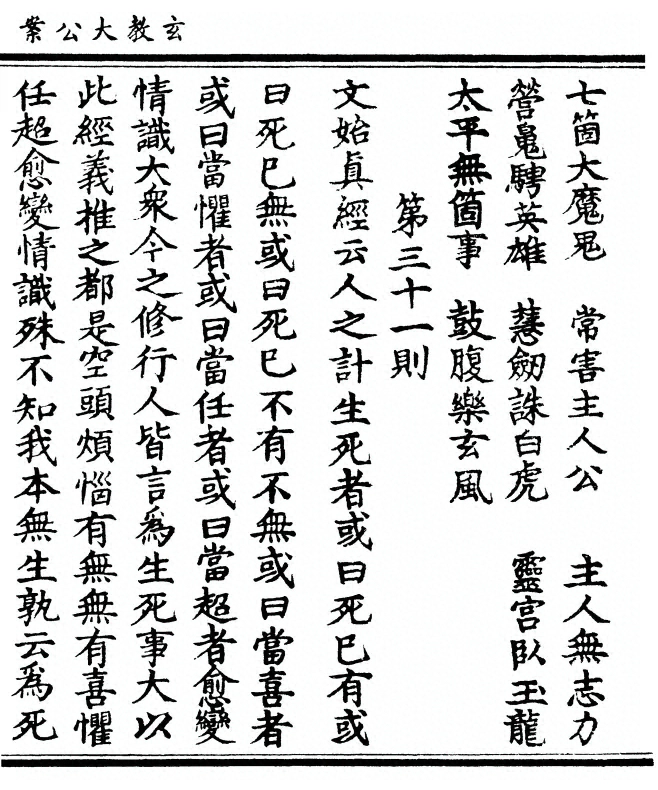 玄教大公案
七箇大魔鬼　常害主人公　主人無志力
營鬼騁英雄　慧劒誅白虎　靈宮臥玉龍
太平無箇事　鼓腹樂玄風
第三十一則
文始眞經云人之計生死者或曰死巳有或
曰死巳無或曰死巳不有不無或曰當喜者
或曰當懼者或曰當任者或曰當超者愈變
情識大衆今之修行人皆言爲生死事大以
此經義推之都是空頭煩惱有無無有喜懼
任超愈變情識殊不知我本無生孰云爲死